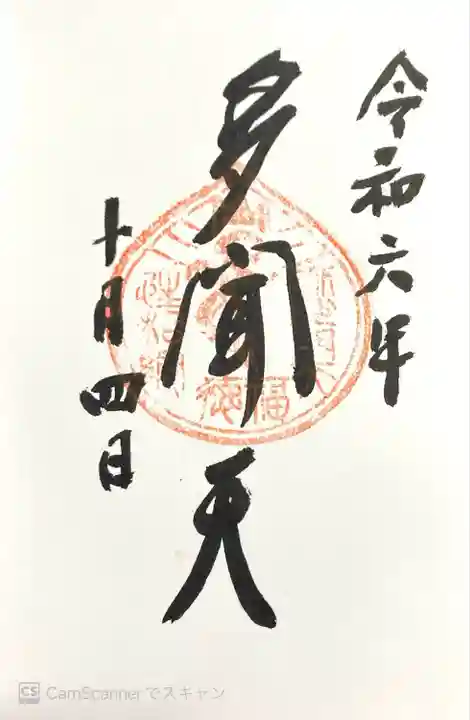 令和六年
多聞天
十月四日
CS CamScannerでスキャン